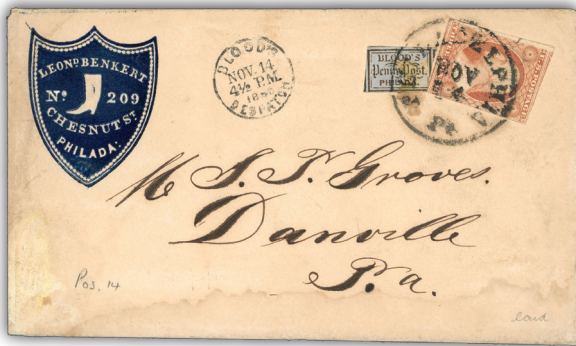 LEOND BENKERT
No 209
CHESNUT ST
PHILADA.
BLOOD'S
NOV. 14
4½ P.M.
DESPATCH
BLOOD'S
Penny Post.
PHILAD
PHILADELPHIA
NOV
14
Pa
S. T. Groves.
Danville
Pa.
Pos. 14